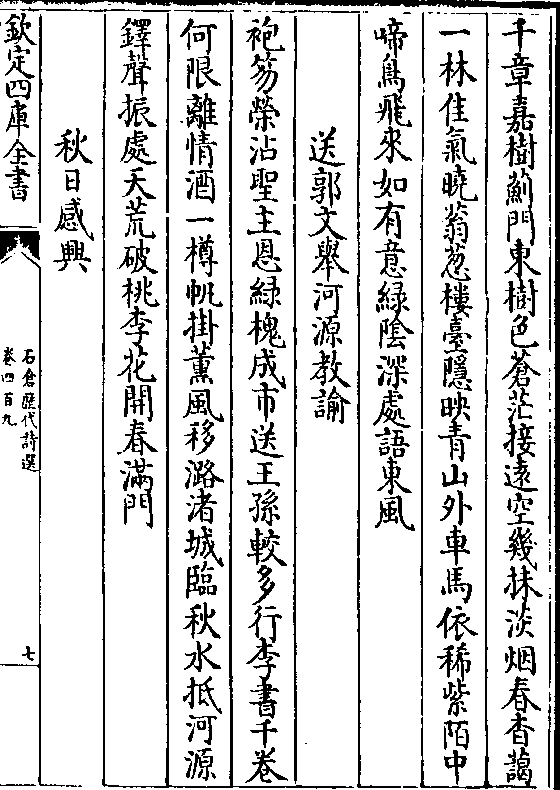 千章嘉樹薊門東樹色蒼茫接遠空幾抹淡烟春杳藹
一林佳氣曉蓊葱樓臺隱映青山外車馬依稀紫陌中
啼鳥飛來如有意綠陰深處語東風
送郭文舉河源教諭
袍笏榮沾聖主恩綠槐成市送王孫較多行李書千卷
何限離情酒一樽帆掛薰風移潞渚城臨秋水抵河源
鐸聲振處天荒破桃李花開春滿門
秋日感興
欽定四庫全書
石倉歷代詩選
卷四百九
七